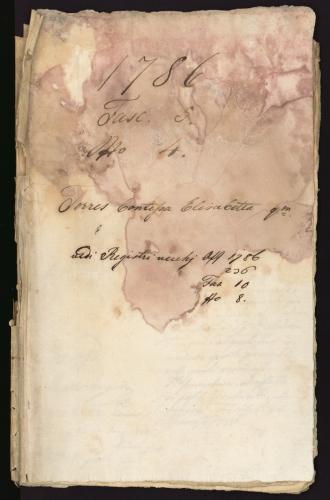 1786
Fasc. 5.
No 4.
Torres Contessa Elisabetta qm.
vedi Registri vecchj Aff 1786
236
Fas 10
No 8.